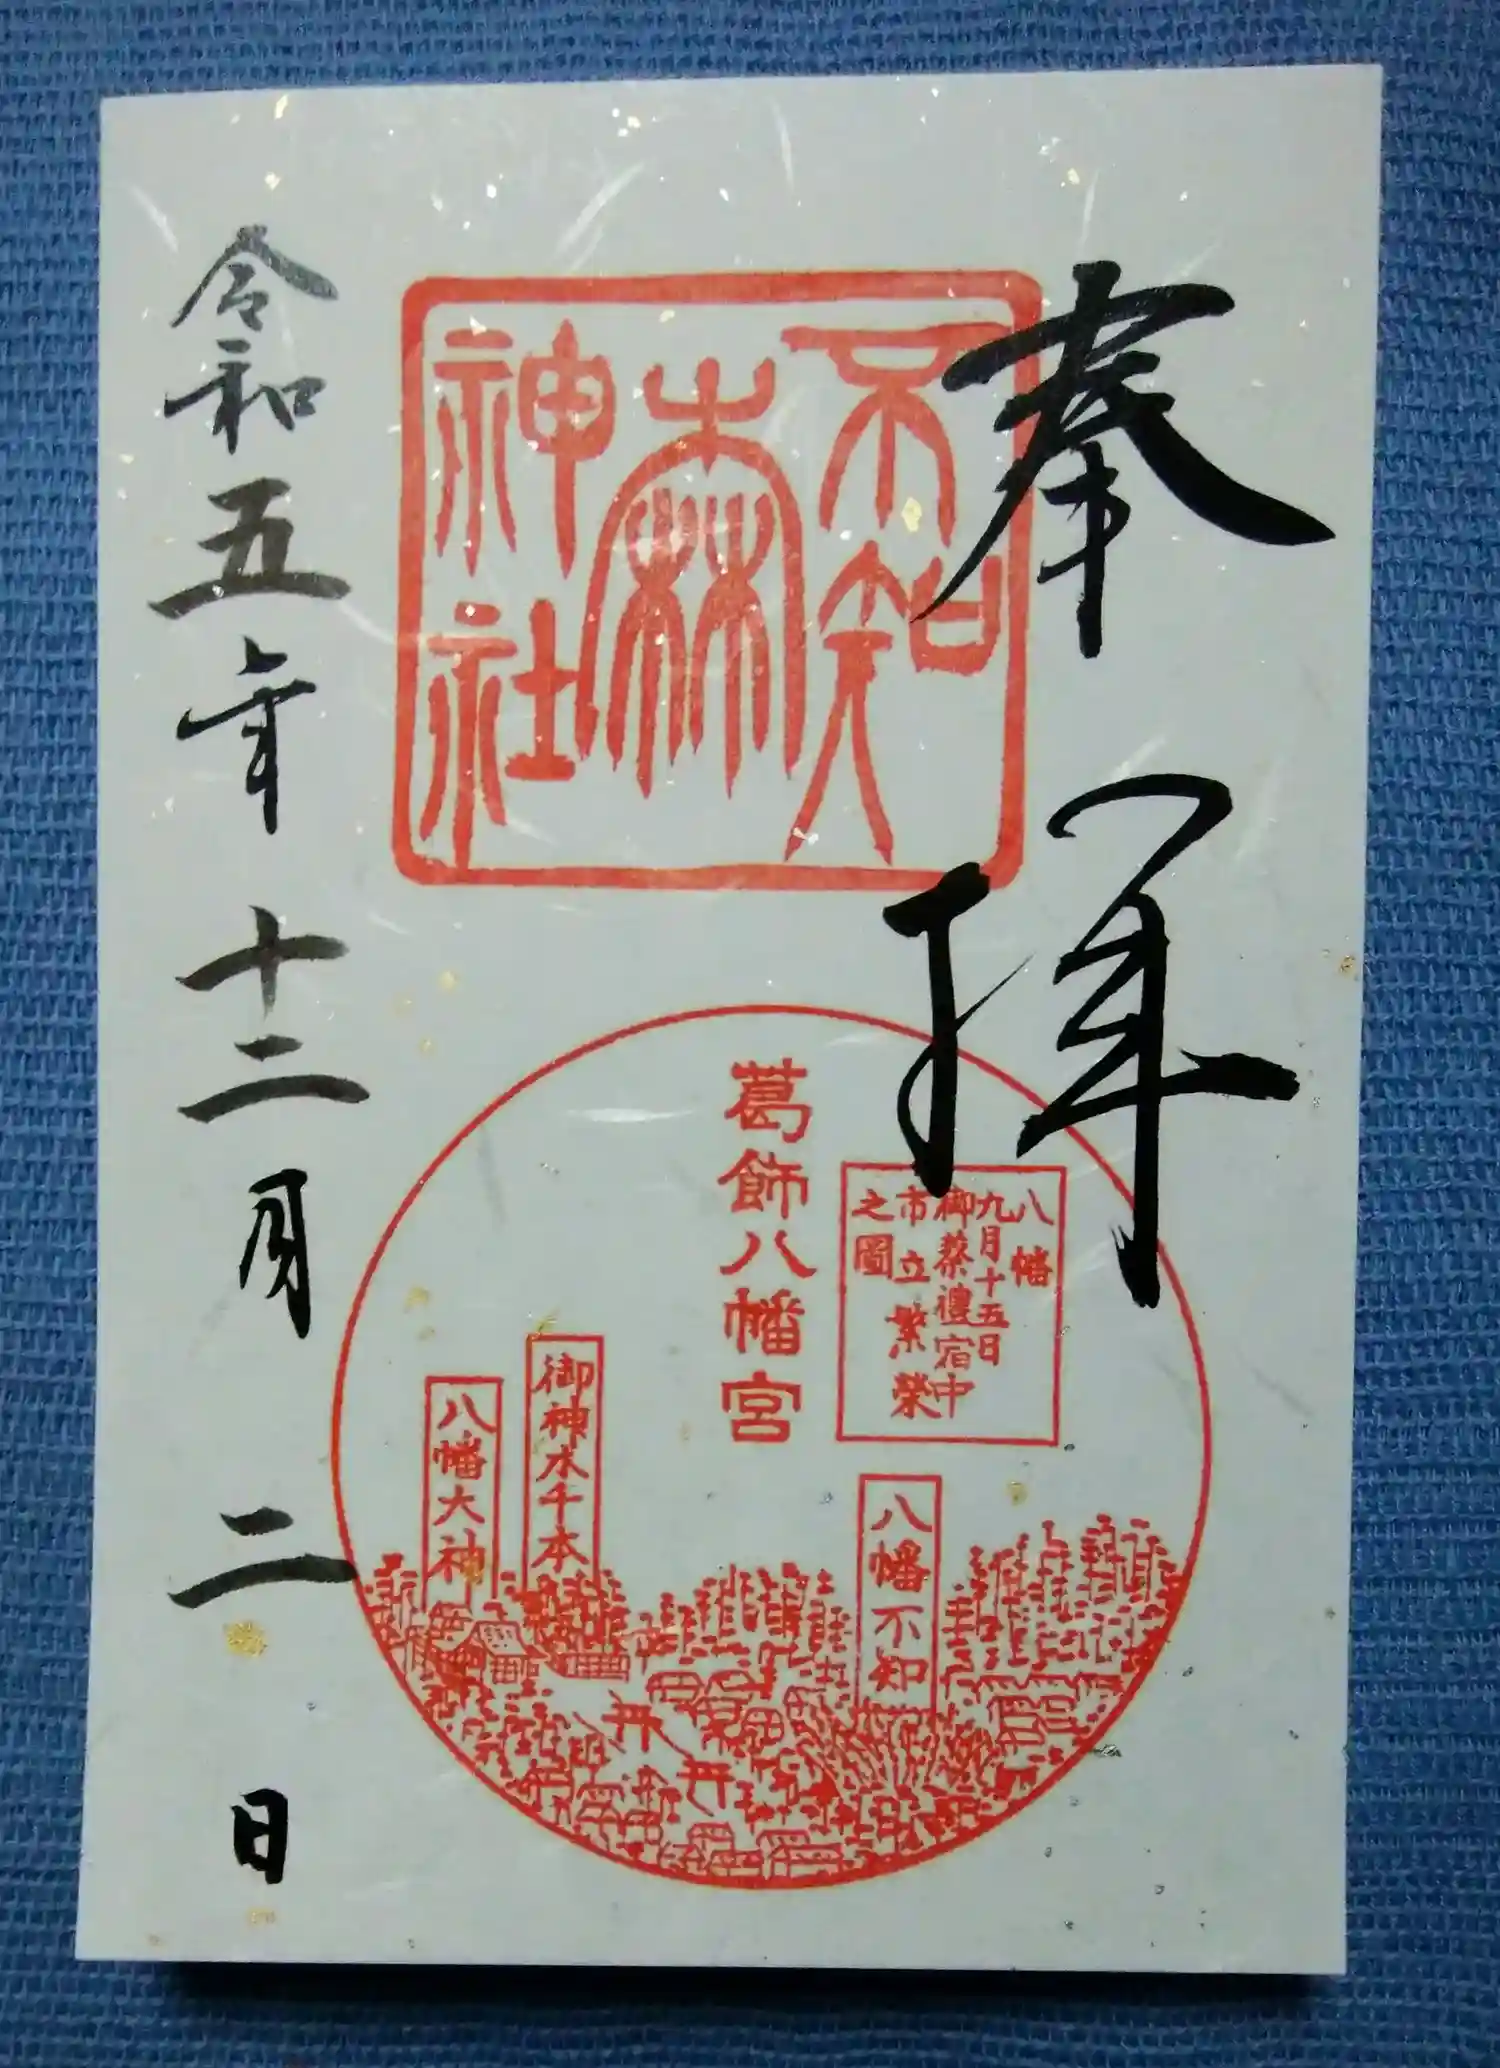 奉拝
不知
森
神社
葛飾八幡宮
八幡
九月十五日
御祭禮宿中
市立繁榮
之圖
八幡不知
御神木千本
八幡大神
令和五年十二月二日